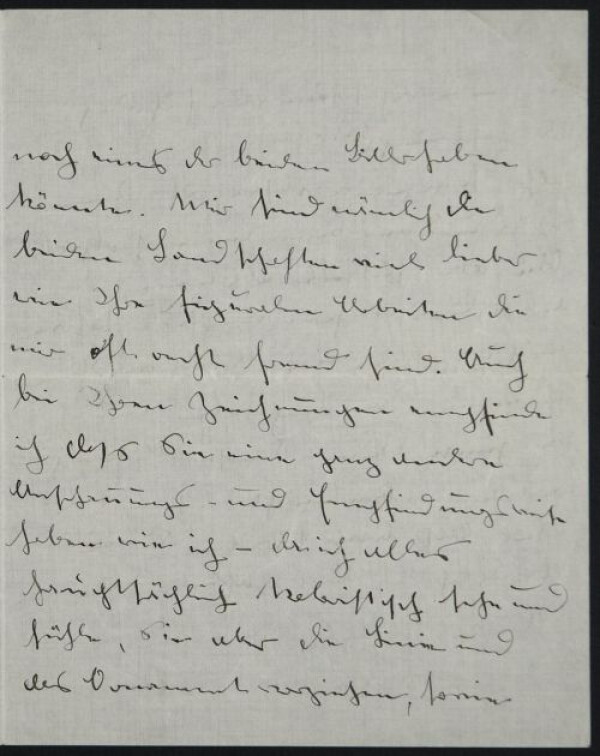 noch eines der beiden Bilder haben
könnte. Mir sind nämlich die
beiden Landschaften viel lieber
wie Ihre figuralen Arbeiten die
mir oft recht fremd sind. Auch
bei Ihren Zeichnungen empfinde
ich dass Sie eine ganz andere
Anschauungs- und Empfindungsweise
haben wie ich – da ich alles
hauptsächlich malerisch sehe und
fühle, Sie aber die Linie und
das Ornament vorziehen, sowie